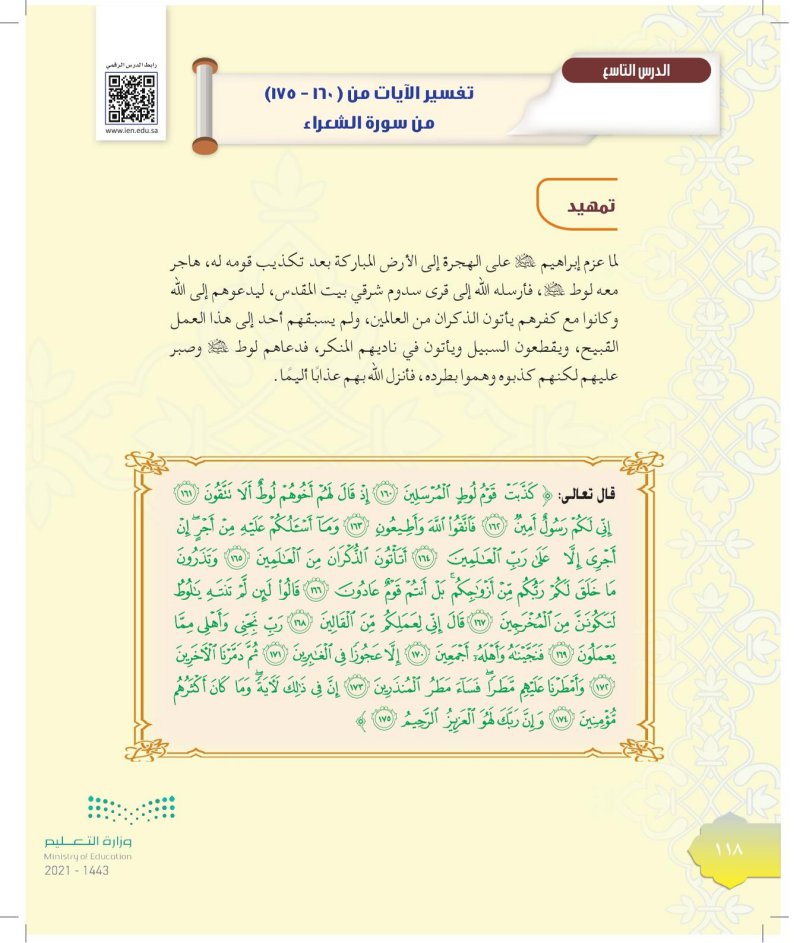 رابط الدرس الرقمي
www.ien.edu.sa
الدرس التاسع
تفسير الآيات من (١٦٠ - ١٧٥)
من سورة الشعراء
تمهيد
لما عزم إبراهيم ﷺ على الهجرة إلى الأرض المباركة بعد تكذيب قومه له، هاجر
معه لوط ﷺ، فأرسله الله إلى قرى سدوم شرقي بيت المقدس، ليدعوهم إلى الله
وكانوا مع كفرهم يأتون الذكران من العالمين، ولم يسبقهم أحد إلى هذا العمل
القبيح، ويقطعون السبيل ويأتون في ناديهم المنكر، فدعاهم لوط ﷺ وصبر
عليهم لكنهم كذبوه وهموا بطرده، فأنزل الله بهم عذابًا أليمًا.
قال تعالى: ﴿ كَذَّبَتْ قَوْمُ لُوطٍ ٱلْمُرْسَلِينَ ١٦٠ إِذْ قَالَ لَهُمْ أَخُوهُمْ لُوطٌ أَلَا تَتَّقُونَ ١٦١
إِنِّي لَكُمْ رَسُولٌ أَمِينٌ ١٦٢ فَٱتَّقُوا۟ ٱللَّهَ وَأَطِيعُونِ ١٦٣ وَمَآ أَسْـَٔلُكُمْ عَلَيْهِ مِنْ أَجْرٍ ۖ إِنْ
أَجْرِىَ إِلَّا عَلَىٰ رَبِّ ٱلْعَـٰلَمِينَ ١٦٤ أَتَأْتُونَ ٱلذُّكْرَانَ مِنَ ٱلْعَـٰلَمِينَ ١٦٥ وَتَذَرُونَ
مَا خَلَقَ لَكُمْ رَبُّكُم مِّنْ أَزْوَٰجِكُم ۚ بَلْ أَنتُمْ قَوْمٌ عَادُونَ ١٦٦ قَالُوا۟ لَئِن لَّمْ تَنتَهِ يَـٰلُوطُ
لَتَكُونَنَّ مِنَ ٱلْمُخْرَجِينَ ١٦٧ قَالَ إِنِّي لِعَمَلِكُم مِّنَ ٱلْقَالِينَ ١٦٨ رَبِّ نَجِّنِي وَأَهْلِي مِمَّا
يَعْمَلُونَ ١٦٩ فَنَجَّيْنَـٰهُ وَأَهْلَهُۥٓ أَجْمَعِينَ ١٧٠ إِلَّا عَجُوزًا فِي ٱلْغَـٰبِرِينَ ١٧١ ثُمَّ دَمَّرْنَا ٱلْـَٔاخَرِينَ
١٧٢ وَأَمْطَرْنَا عَلَيْهِم مَّطَرًا ۖ فَسَآءَ مَطَرُ ٱلْمُنذَرِينَ ١٧٣ إِنَّ فِي ذَٰلِكَ لَـَٔايَةً ۖ وَمَا كَانَ أَكْثَرُهُم
مُّؤْمِنِينَ ١٧٤ وَإِنَّ رَبَّكَ لَهُوَ ٱلْعَزِيزُ ٱلرَّحِيمُ ١٧٥ ﴾
وزارة التعليم
Ministry of Education
2021 - 1443
١١٨